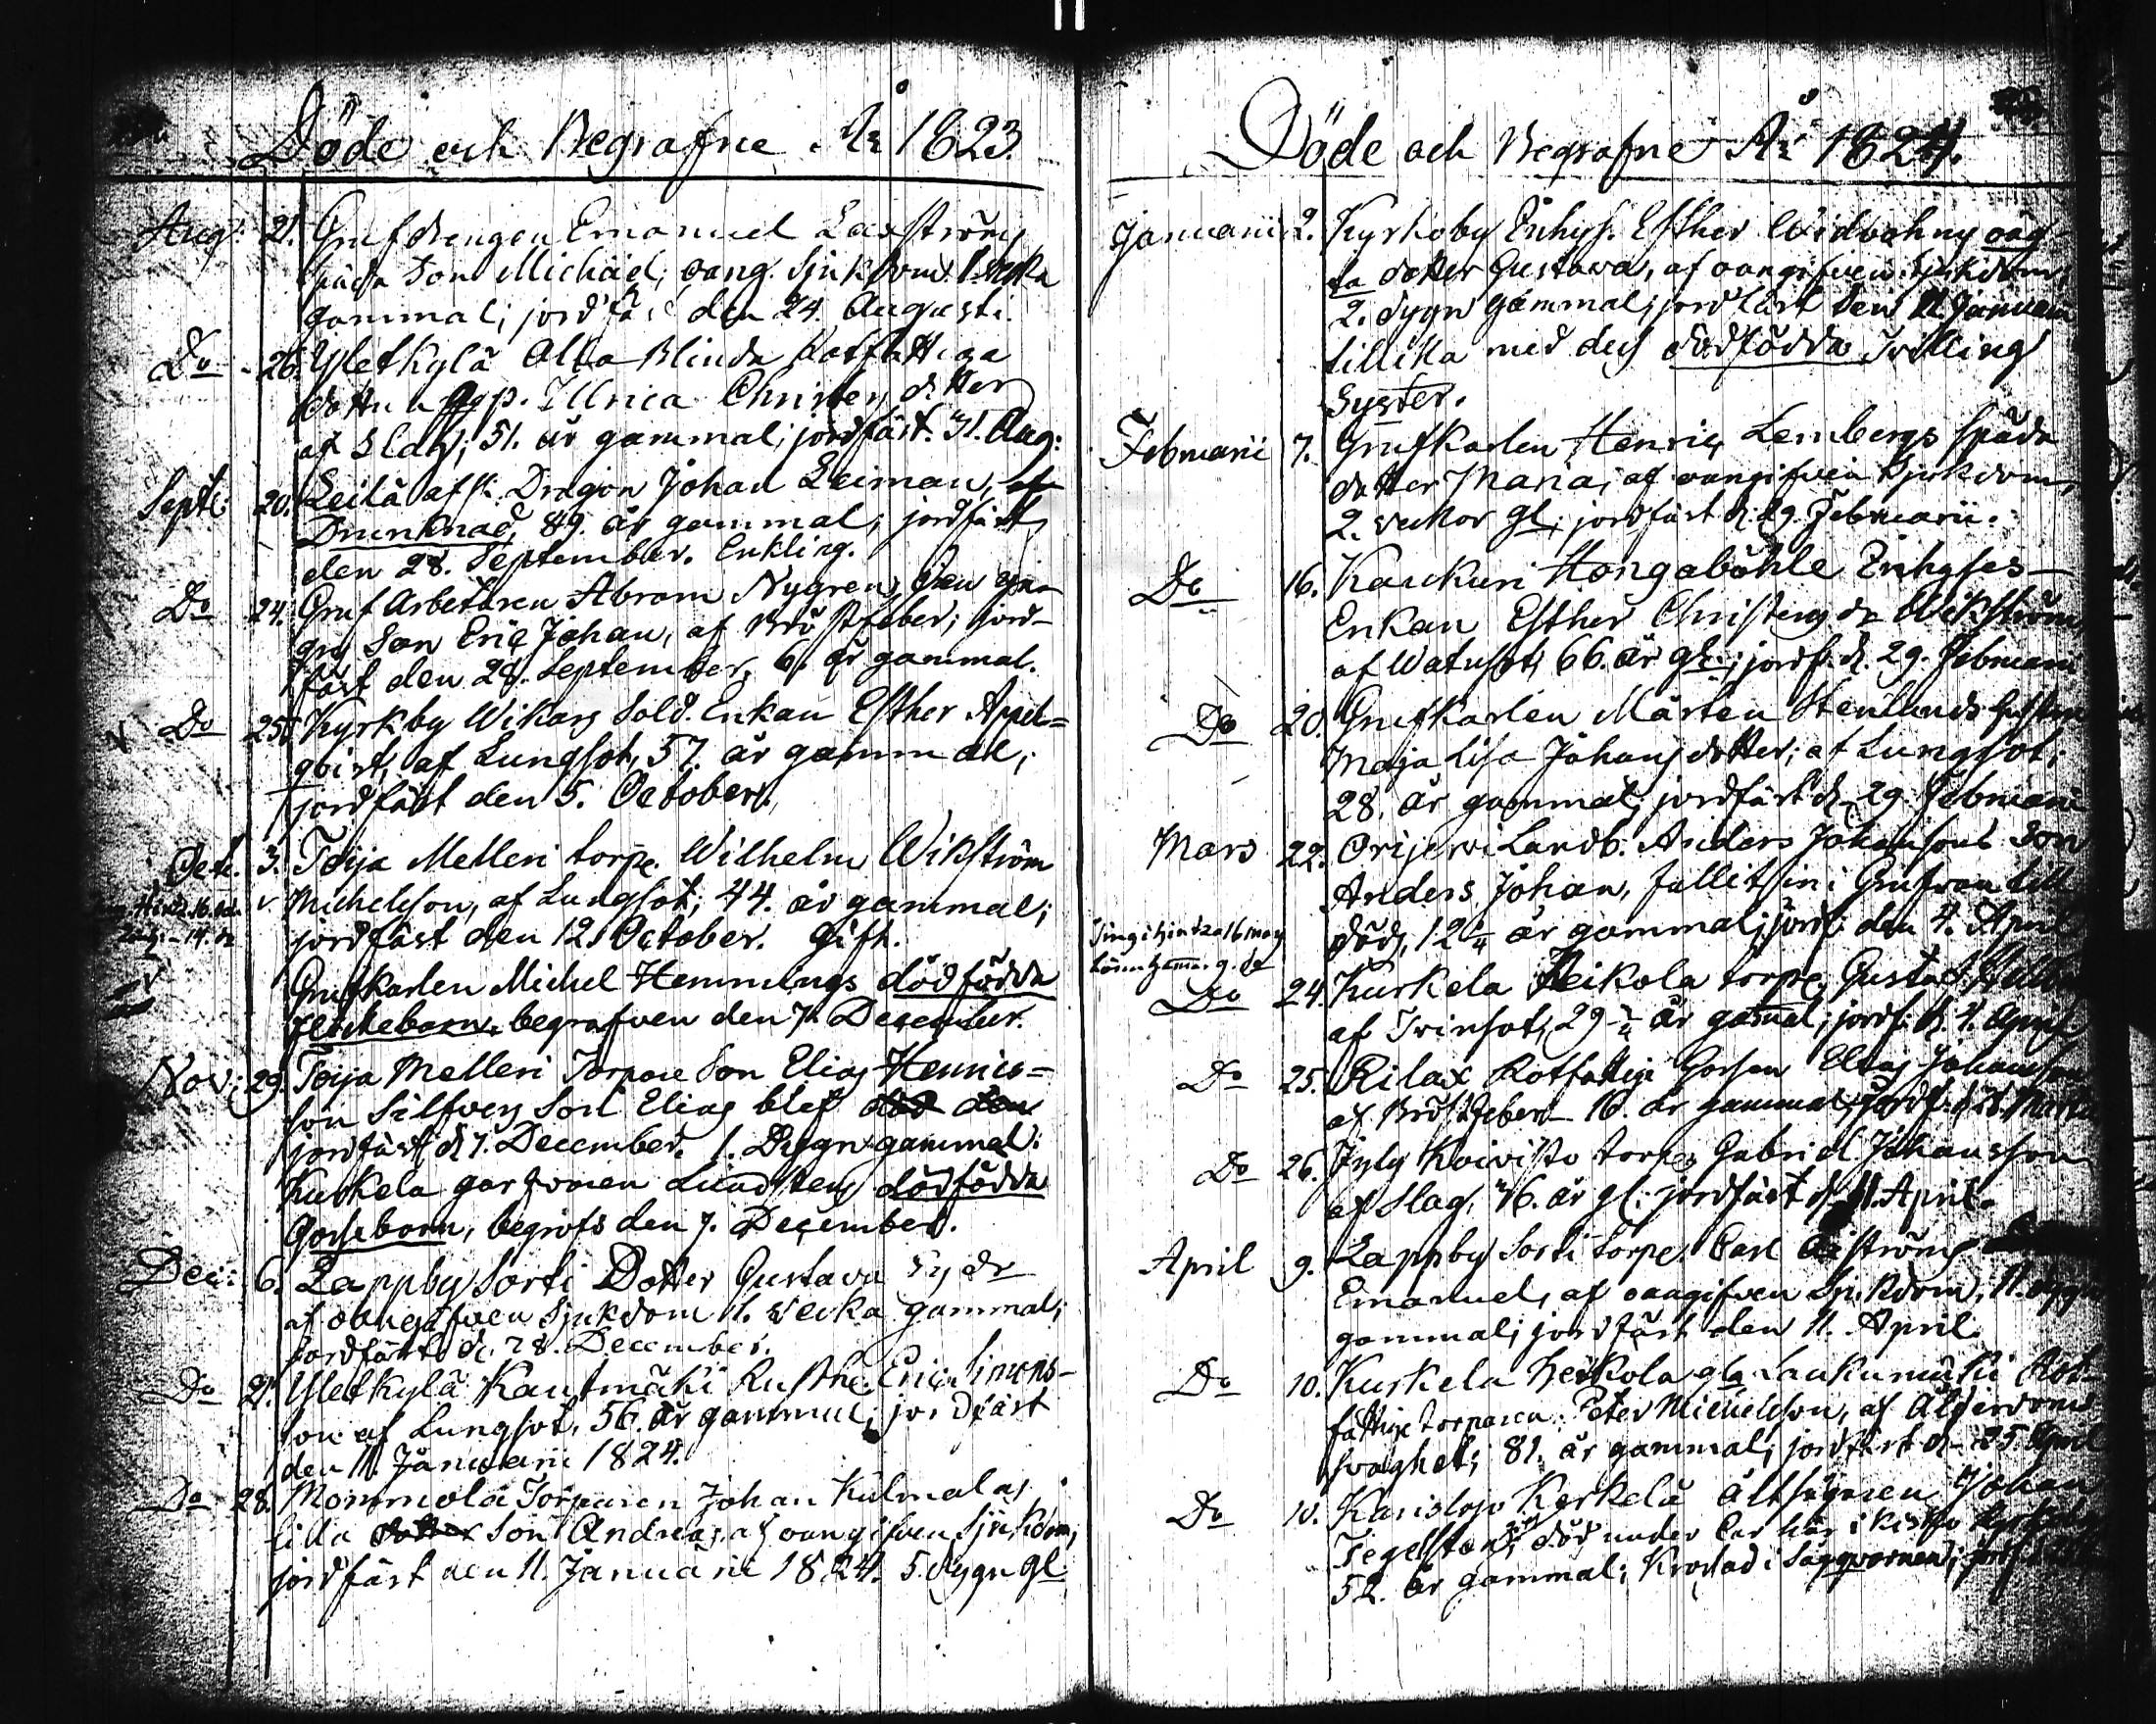 Döde och Begrafne År 1823.
Aug: 21. Grufdrengen Emanuel Laxströms
späda Son Michäel, oang. Sjukdom 1. vecka
gammal; jordfäst den 24. Augusti.
Do 26. Yletkylä Alla Blinda Rotfattiga
Ullrica Christersdotter
af Slag; 51. år gammal; jordfäst. 31. Aug:
Septe: 20. Leilä afsk. Dragon Johan Leiman,
Drunknad, 89. år gammal; jordfäst
den 28. September. Enkling.
Do 24. Gruf Arbetaren Abram Nygrens
Son Eric Johan, af Bröstfeber; jord-
fäst den 28. September, 6. år gammal.
Do 25. Kyrkby Wikars Sold. Enkan Esther Appel=
qvist, af Lungsot, 57. år gammal;
jordfäst den 5. October.
Oct. 3. Toija Melleri torp. Wilhelm Wikström
Michelsson, af Lungsot; 44. år gammal;
jordfäst den 12. October. Gift.
Grufkarlen Michel Hemmings dödfödda
flickebarn, begrafven den 7. December.
Nov: 29. Toija Melleri Torpare Son Elias Henrics=
son Silfvers Son Elias blef död den
jordfäst d 7. December. 1. Dygn gammal.
Kurkela garfvaren Lindstens dödfödda
Gosseborn, begrofs den 7. December.
Dec: 6. Lappby Sorti Dotter Gustava
af oangifven Sjukdom 1. vecka gammal;
jordfäst d. 28. December.
Do 21. Yletkylä Kautmäki Rusth. Eric Simons-
son af Lungsot, 56. år gammal; jordfäst
den 11. Januarii 1824.
Do 28. Mommola Torparen Johan Kulmalas
lilla dotter Son Andreas, af oangifven Sjukdom,
jordfäst den 11. Januarii 1824. 5. dygn gl.
Döde och Begrafne År 1824.
Januarii 2. Kyrkoby Inhys. Esther Widbohms oäg-
ta dotter Gustava, af oangifven Sjukdom,
2. dygn gammal; jordfäst den 11. Januarii
tillika med des dödfödda Tvilling
Syster.
Februarii 7. Grufkarlen Henric Lembergs späda
dotter Maria; af oangifven Sjukdom,
2. veckor gl; jordfäst d. 29. Februarii.
Do 16. Kaukuri Hongaböhle Inhyses-
Enkan Esther Christens dr Wikström
af Watusot, 66. år gl.; jordf. d. 29. Februarii
Do 20. Grufkarlen Mårten Stenlunds hustru
Maja Lisa Johans dotter; af Lungsot;
28. år gammal; jordfäst d. 29. Februarii
Mars 22. Orijervi Landb. Anders Johansons Son
Anders Johan, fallit sin i Grufvan till
död, 12 1/4 år gammal; jordf. den 4. April
Do 24. Kurkela Heikola torp. Gustaf
af Tvinsot, 29 år gammal; jordf. d. 4. April
Do 25. Rilax Rotfattige Gossen Elias Johansson
af Bröstfeber 16. år gammal; jordf. d 28. Martii
Do 26. Jyly Koivisto torp. Gabriel Johansson
af Slag. 46. år gl. jordfäst d. 11. April.
April 9. Lappby Sorti torp. Carl
Emanuel, af oangifven Sjukdom, 11. dygn
gammal; jordfäst den 11. April.
Do 10. Kurkela Heikola gla Laukamäki Rot-
fattige torparen Peter Michelsson, af Ålderdoms
svaghet; 81. år gammal; jordfäst d. 25. April
Do 10. Karislojo Kerkelä Johan
Tegelsten, död under
52. år gammal; Krossad i Sågqvarnen;